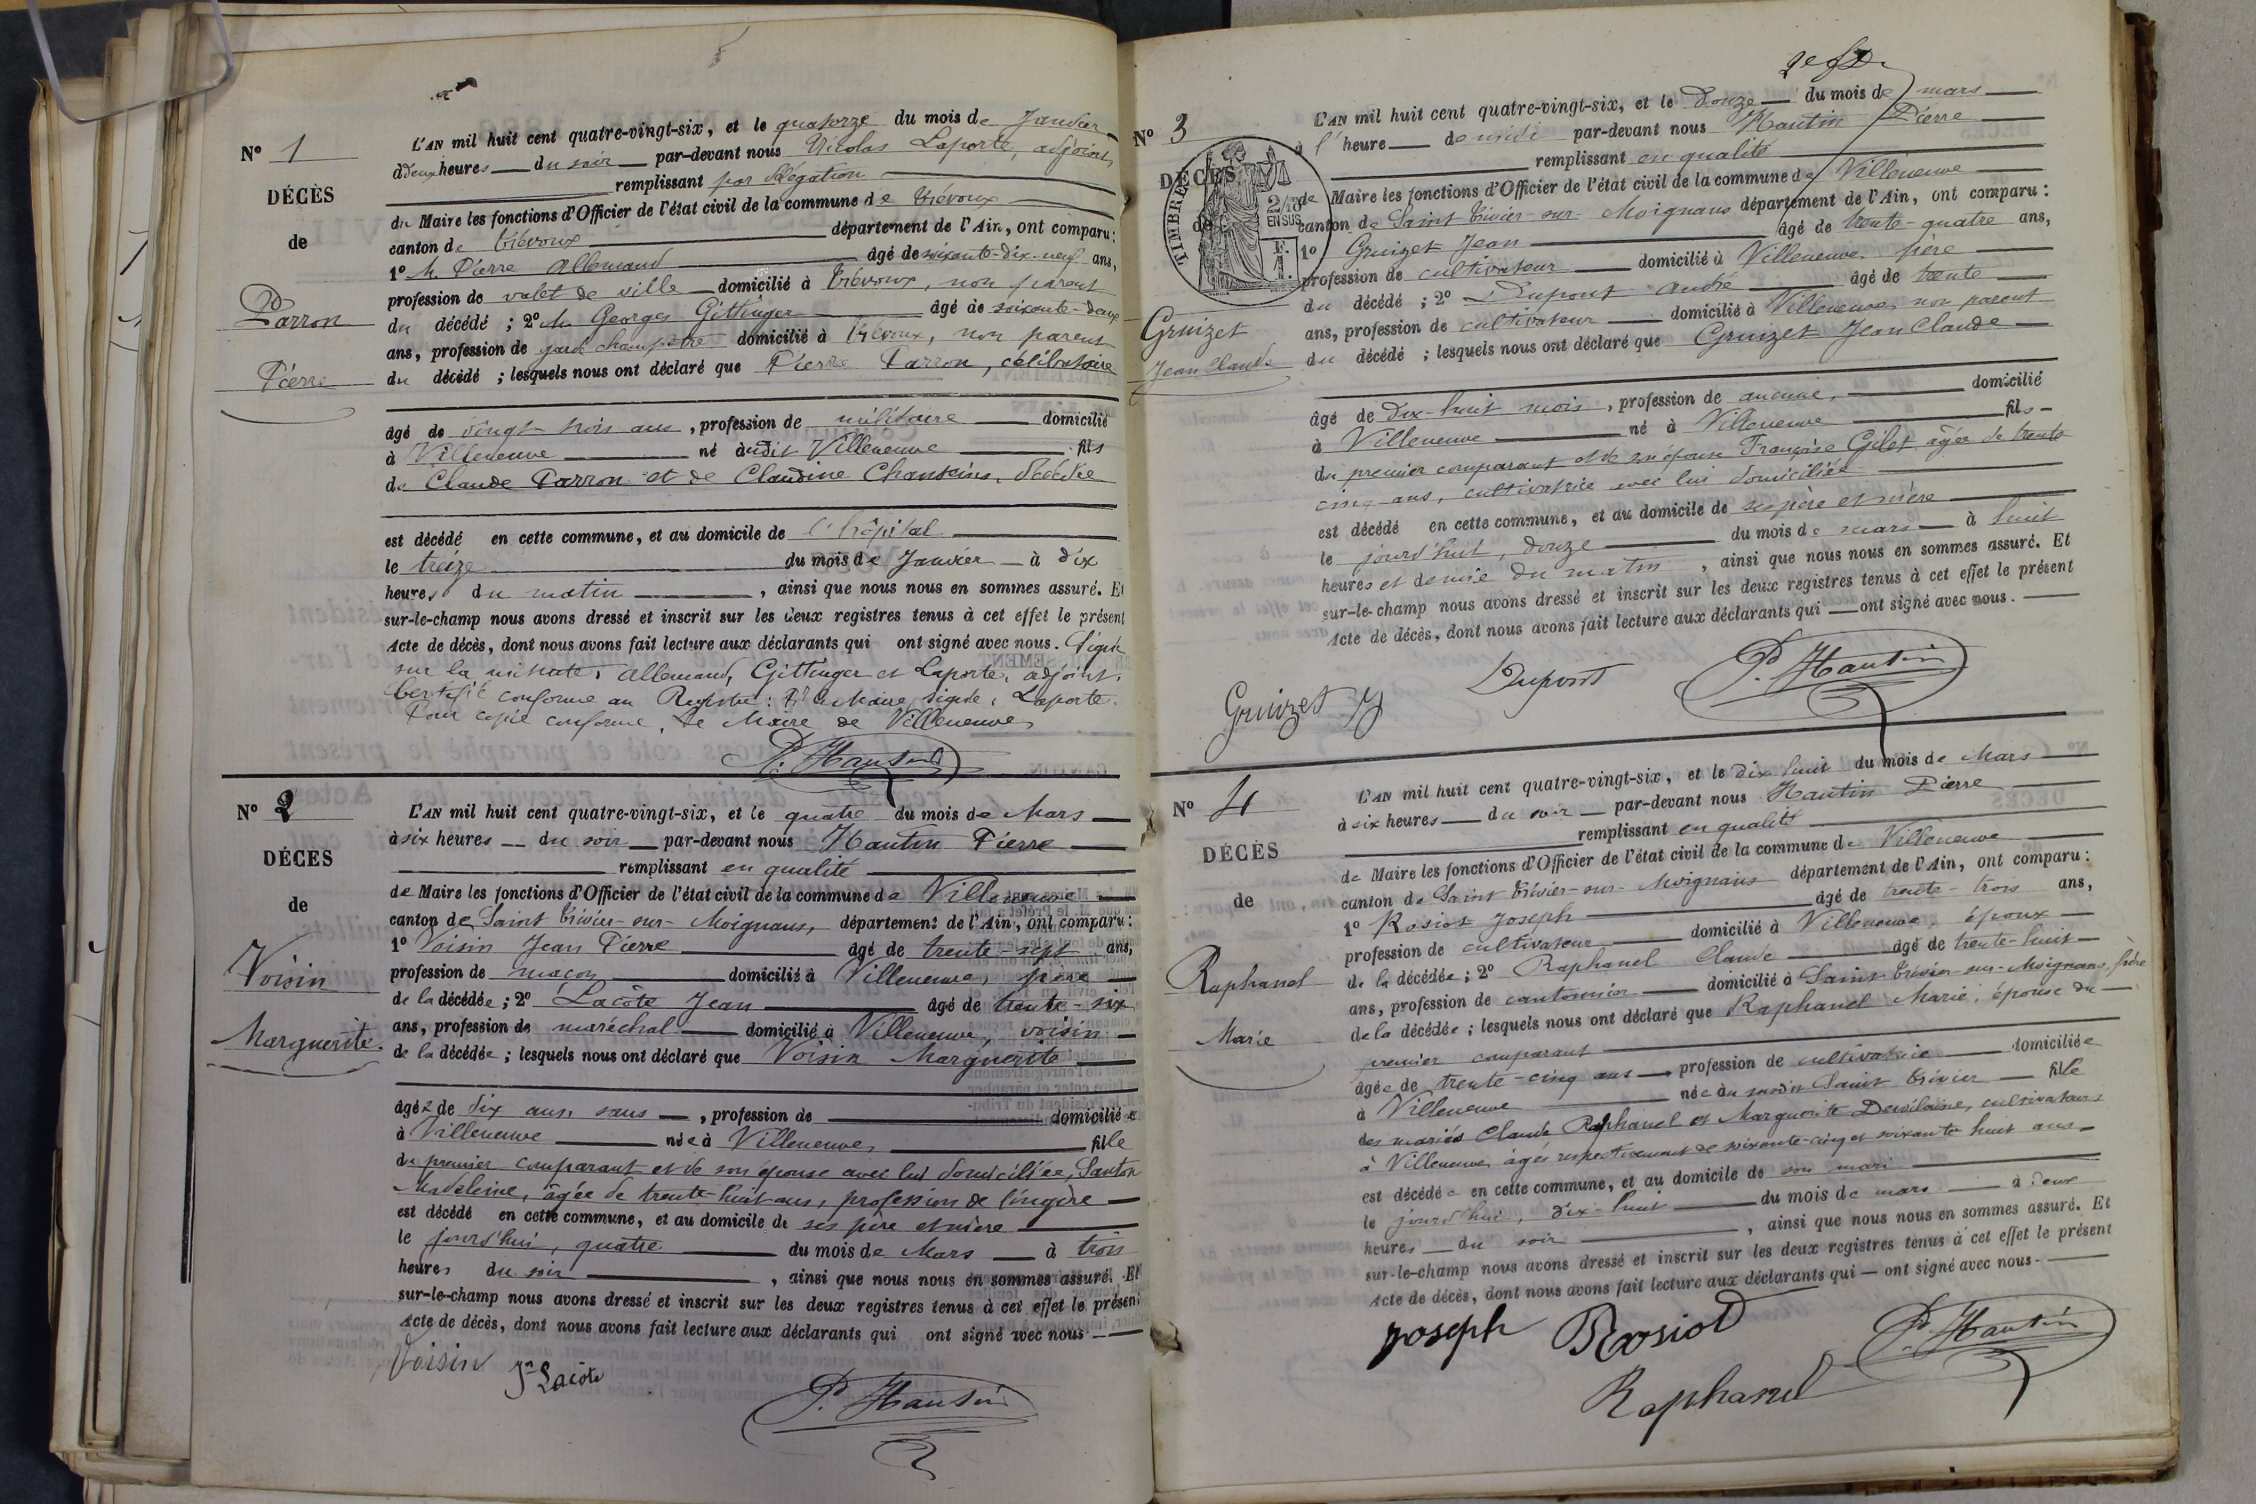 N° 1
DÉCÈS
de
Parron
Pierre
L'AN mil huit cent quatre-vingt-six, et le quatorze du mois de Janvier
à deux heures du soir par-devant nous Nicolas Laporte, adjoint
remplissant par délégation
du Maire les fonctions d'Officier de l'état civil de la commune de Trévoux
canton de Trévoux département de l'Ain, ont comparu :
1° M. Pierre Allemand âgé de soixante-dix-neuf ans,
profession de valet de ville domicilié à Trévoux, non parent
du décédé ; 2° M. Georges Gittinger âgé de soixante-deux
ans, profession de garde champêtre domicilié à Trévoux, non parent
du décédé ; lesquels nous ont déclaré que Pierre Parron, célibataire
âgé de vingt-trois ans, profession de militaire domicilié
à Villeneuve né audit Villeneuve fils
de Claude Parron et de Claudine Chanteins, décédée
est décédé en cette commune, et au domicile de l'hôpital
le treize du mois de Janvier à dix
heures du matin, ainsi que nous nous en sommes assuré. Et
sur-le-champ nous avons dressé et inscrit sur les deux registres tenus à cet effet le présent
Acte de décès, dont nous avons fait lecture aux déclarants qui ont signé avec nous. Signé
sur la minute : Allemand, Gittinger et Laporte, adjoint.
Certifié conforme au Registre : Pr le Maire, signé : Laporte.
Pour copie conforme, Le Maire de Villeneuve
P. Hantin
N° 2
DÉCES
de
Voisin
Marguerite.
L'AN mil huit cent quatre-vingt-six, et le quatre du mois de Mars
à six heures du soir par-devant nous Hantin Pierre
remplissant en qualité
de Maire les fonctions d'Officier de l'état civil de la commune de Villeneuve
canton de Saint Trivier-sur-Moignans, département de l'Ain, ont comparu :
1° Voisin Jean Pierre âgé de trente-sept ans,
profession de maçon domicilié à Villeneuve, père
de la décédée ; 2° Lacôte Jean âgé de trente-six
ans, profession de maréchal domicilié à Villeneuve, voisin
de la décédée ; lesquels nous ont déclaré que Voisin Marguerite
âgée de dix ans, profession de domiciliée
à Villeneuve née à Villeneuve, fille
du premier comparant et de son épouse avec lui domiciliée, Santon
Madeleine, âgée de trente-huit ans, profession de lingère
est décédé en cette commune, et au domicile de ses père et mère
le jourd'hui, quatre du mois de Mars à trois
heures du soir, ainsi que nous nous en sommes assuré. Et
sur-le-champ nous avons dressé et inscrit sur les deux registres tenus à cet effet le présent
Acte de décès, dont nous avons fait lecture aux déclarants qui ont signé avec nous
Voisin Jn Lacôte
P. Hantin
N° 3
DÉCÈS
de
TIMBRE
2/10 EN SUS
Gruizet
Jean Claude
L'AN mil huit cent quatre-vingt-six, et le Douze du mois de mars
à l'heure de midi par-devant nous Hantin Pierre
remplissant en qualité
de Maire les fonctions d'Officier de l'état civil de la commune de Villeneuve
canton de Saint Trivier-sur-Moignans département de l'Ain, ont comparu :
1° Gruizet Jean âgé de trente-quatre ans,
profession de cultivateur domicilié à Villeneuve, père
du décédé ; 2° Dupont André âgé de trente
ans, profession de cultivateur domicilié à Villeneuve, non parent
du décédé ; lesquels nous ont déclaré que Gruizet Jean Claude
âgé de Dix-huit mois, profession de aucune, domicilié
à Villeneuve né à Villeneuve fils
du premier comparant et de son épouse Françoise Gilet âgée de trente
cinq ans, cultivatrice avec lui domiciliée
est décédé en cette commune, et au domicile de ses père et mère
le jourd'hui, douze du mois de mars à huit
heures et demie du matin, ainsi que nous nous en sommes assuré. Et
sur-le-champ nous avons dressé et inscrit sur les deux registres tenus à cet effet le présent
Acte de décès, dont nous avons fait lecture aux déclarants qui ont signé avec nous.
Gruizet J Dupont P. Hantin
N° 4
DÉCÈS
de
Raphanel
Marie
L'AN mil huit cent quatre-vingt-six, et le dix huit du mois de Mars
à six heures du soir par-devant nous Hantin Pierre
remplissant en qualité
de Maire les fonctions d'Officier de l'état civil de la commune de Villeneuve
canton de Saint Trivier-sur-Moignans département de l'Ain, ont comparu :
1° Rosiot Joseph âgé de trente-trois ans,
profession de cultivateur domicilié à Villeneuve, époux
de la décédée ; 2° Raphanel Claude âgé de trente-huit
ans, profession de cantonnier domicilié à Saint Trivier-sur-Moignans, frère
de la décédée ; lesquels nous ont déclaré que Raphanel Marie, épouse du
premier comparant
âgée de trente-cinq ans profession de cultivatrice domiciliée
à Villeneuve née au susdit Saint Trivier fille
des mariés Claude Raphanel et Marguerite cultivateurs
à Villeneuve, âgés respectivement de soixante-cinq et soixante huit ans
est décédée en cette commune, et au domicile de son mari
le jourd'hui, dix-huit du mois de mars à deux
heures du soir, ainsi que nous nous en sommes assuré. Et
sur-le-champ nous avons dressé et inscrit sur les deux registres tenus à cet effet le présent
Acte de décès, dont nous avons fait lecture aux déclarants qui ont signé avec nous.
Joseph Rosiot P. Hantin
Raphanel